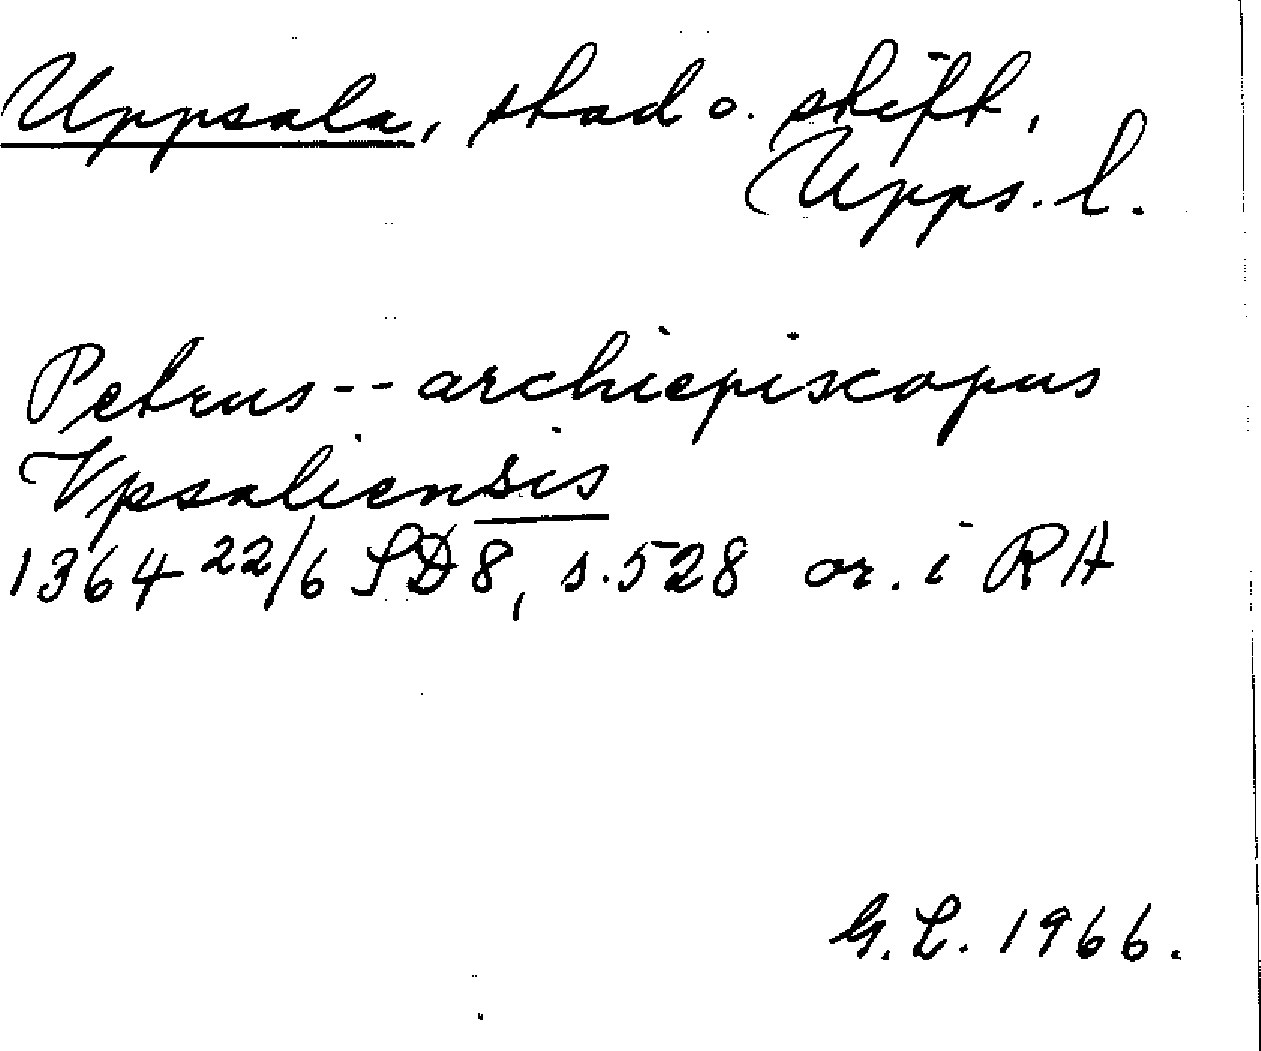 Uppsala, stad o. stift,
Upps. l.
Petrus -- archiepiscopus
Vpsaliensis
1364 22/6 SD 8, s. 528 or. i RA
G. L. 1966.